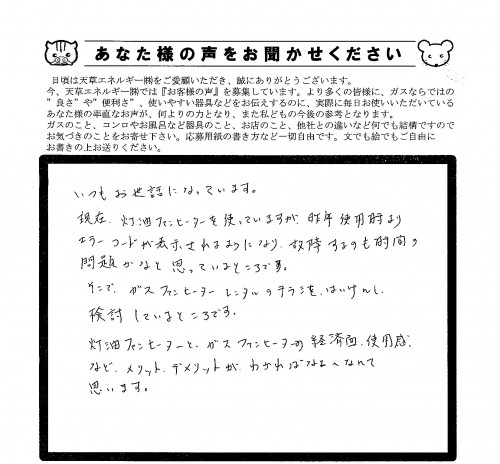 あなた様の声をお聞かせください
日頃は天草エネルギー㈱をご愛顧いただき、誠にありがとうございます。
今、天草エネルギー㈱では『お客様の声』を募集しています。より多くの皆様に、ガスならではの
”良さ”や”便利さ”、使いやすい器具などをお伝えするのに、実際に毎日お使いいただいている
あなた様の率直なお声が、何よりの力となり、また私どもの今後の参考となります。
ガスのこと、コンロやお風呂など器具のこと、お店のこと、他社との違いなど何でも結構ですので
お気づきのことをお寄せ下さい。応募用紙の書き方など一切自由です。文でも絵でもご自由に
お書きの上お送りください。
いつもお世話になっています。
現在、灯油ファンヒーターを使っていますが、昨年使用時より
エラーコードが表示されるようになり、故障するのも時間の
問題かなと思っているところです。
そこで、ガスファンヒーターレンタルのチラシを、はいけんし、
検討しているところです。
灯油ファンヒーターと、ガスファンヒーターの経済面、使用感、
など、メリット、デメリットが、わかればなぁ〜なんて
思います。